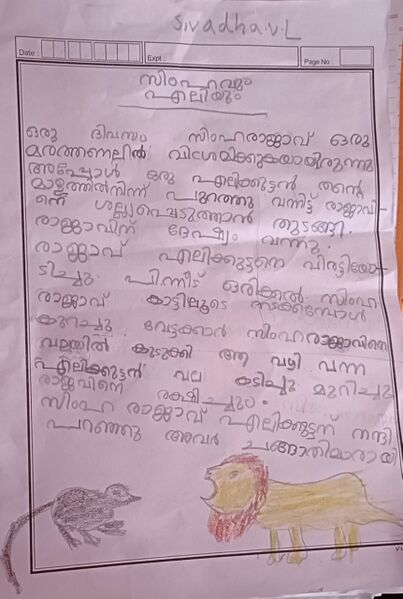 Sivadha.V.L
Date : Expt : Page No :
സിംഹവും
എലിയും
ഒരു ദിവസം സിംഹരാജാവ് ഒരു
മരത്തണലിൽ വിശ്രമിക്കുകയായിരുന്നു
അപ്പോൾ ഒരു എലിക്കുട്ടൻ തന്റെ
മാളത്തിൽനിന്ന് പുറത്തു വന്നിട്ട് രാജാവി-
നെ ശല്ല്യപ്പെടുത്താൻ തുടങ്ങി.
രാജാവിന് ദേഷ്യം വന്നു.
രാജാവ് എലിക്കുട്ടനെ വിരട്ടിയോ-
ടിച്ചു. പിന്നീട് ഒരിക്കൽ സിംഹ
രാജാവ് കാട്ടിലൂടെ നടക്കുമ്പോൾ
കുറച്ചു വേട്ടക്കാർ സിംഹരാജാവിനെ
വലയിൽ കുടുക്കി ആ വഴി വന്ന
എലിക്കുട്ടൻ വല കടിച്ചു മുറിച്ചു
രാജാവിനെ രക്ഷിച്ചു.
സിംഹ രാജാവ് എലിക്കുട്ടന് നന്ദി
പറഞ്ഞു അവർ ചങ്ങാതിമാരായി